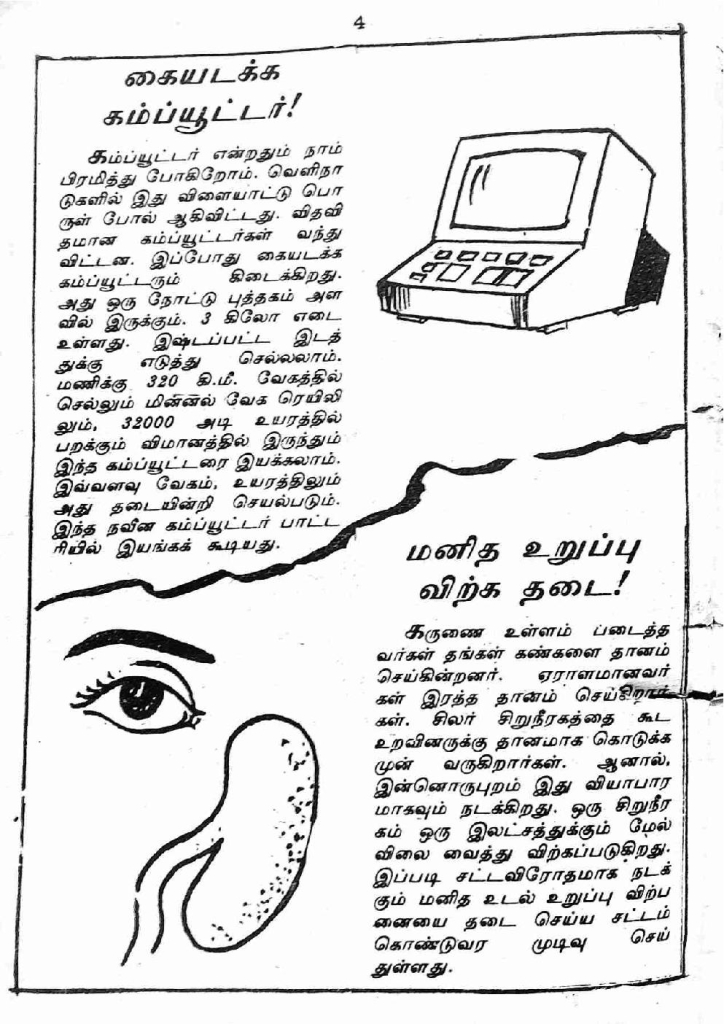 4
கையடக்க
கம்ப்யூட்டர்!
கம்ப்யூட்டர் என்றதும் நாம்
பிரமித்து போகிறோம். வெளிநா
டுகளில் இது விளையாட்டு பொ
ருள் போல் ஆகிவிட்டது. விதவி
தமான கம்ப்யூட்டர்கள் வந்து
விட்டன. இப்போது கையடக்க
கம்ப்யூட்டரும் கிடைக்கிறது.
அது ஒரு நோட்டு புத்தகம் அள
வில் இருக்கும். 3 கிலோ எடை
உள்ளது. இஷ்டப்பட்ட இடத்
துக்கு எடுத்து செல்லலாம்.
மணிக்கு 320 கி.மீ. வேகத்தில்
செல்லும் மின்னல் வேக ரெயிலி
லும், 32000 அடி உயரத்தில்
பறக்கும் விமானத்தில் இருந்தும்
இந்த கம்ப்யூட்டரை இயக்கலாம்.
இவ்வளவு வேகம், உயரத்திலும்
அது தடையின்றி செயல்படும்.
இந்த நவீன கம்ப்யூட்டர் பாட்ட
ரியில் இயங்கக் கூடியது.
மனித உறுப்பு
விற்க தடை!
கருணை உள்ளம் படைத்த
வர்கள் தங்கள் கண்களை தானம்
செய்கின்றனர். ஏராளமானவர்
கள் இரத்த தானம் செய்கிறார்
கள். சிலர் சிறுநீரகத்தை கூட
உறவினருக்கு தானமாக கொடுக்க
முன் வருகிறார்கள். ஆனால்,
இன்னொருபுறம் இது வியாபார
மாகவும் நடக்கிறது. ஒரு சிறுநீர
கம் ஒரு இலட்சத்துக்கும் மேல்
விலை வைத்து விற்கப்படுகிறது.
இப்படி சட்டவிரோதமாக நடக்
கும் மனித உடல் உறுப்பு விற்ப
னையை தடை செய்ய சட்டம்
கொண்டுவர முடிவு செய்
துள்ளது.